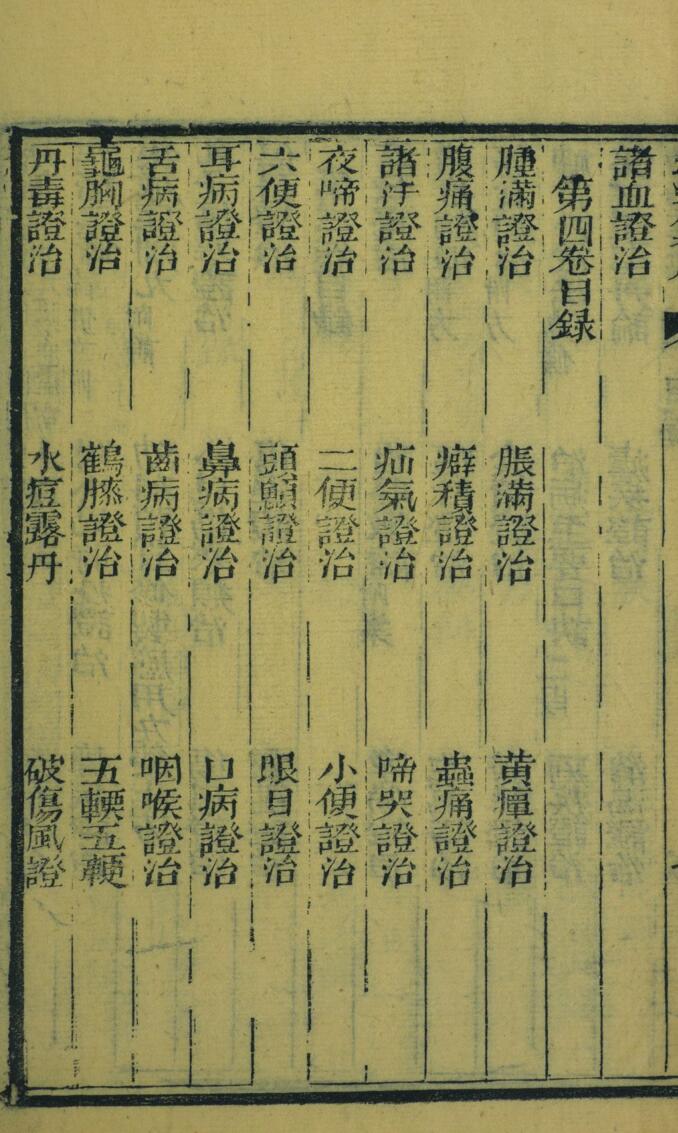 諸血證治
第四卷目録
腫滿證治 脹滿證治 黄瘅證治
腹痛證治 癖積證治 蟲痛證治
諸汗證治 疝氣證治 啼哭證治
夜啼證治 二便證治 小便證治
六便證治 頭顖證治 眼目證治
耳病證治 鼻病證治 口病證治
舌病證治 齒病證治 咽喉證治
龜胸證治 鶴膝證治 五軟五鞕
丹毒證治 水痘露丹 破傷風證